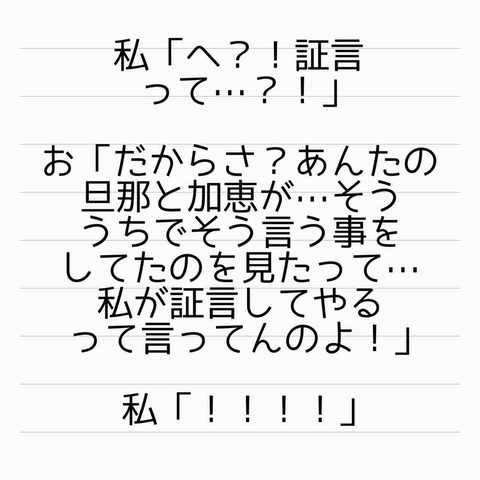 私「へ？！証言
って…？！」
お「だからさ？あんたの
旦那と加恵が…そう
うちでそう言う事を
してたのを見たって…
私が証言してやる
って言ってんのよ！」
私「！！！！」